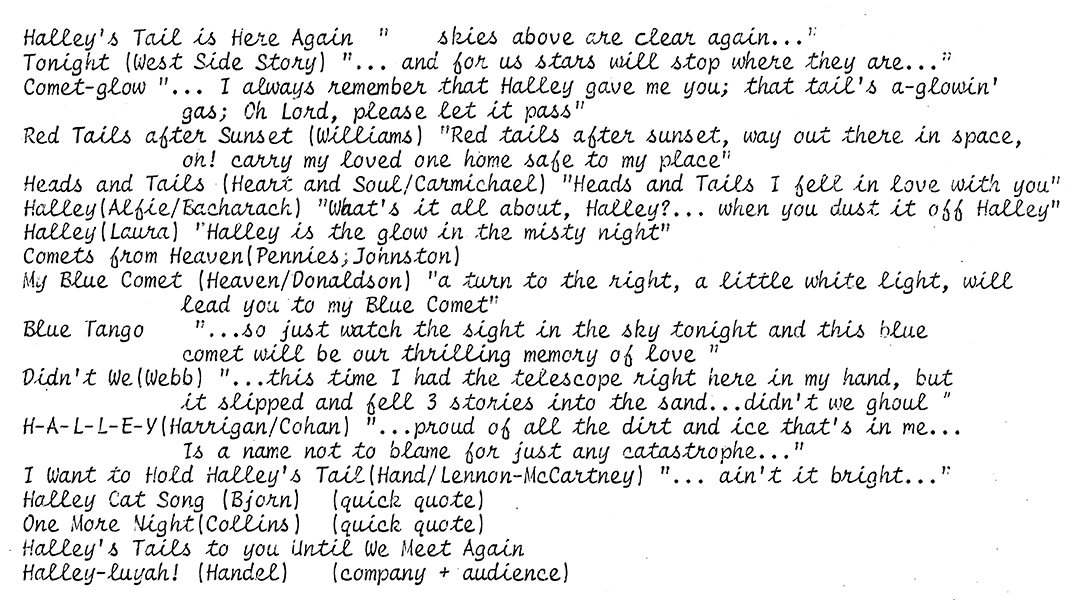 Halley's Tail is Here Again " skies above are clear again..."
Tonight (West Side Story) "... and for us stars will stop where they are..."
Comet-glow "... I always remember that Halley gave me you; that tail's a-glowin'
gas; Oh Lord, please let it pass"
Red Tails after Sunset (Williams) "Red tails after sunset, way out there in space,
oh! carry my loved one home safe to my place"
Heads and Tails (Heart and Soul/Carmichael) "Heads and Tails I fell in love with you"
Halley(Alfie/Bacharach) "What's it all about, Halley?... when you dust it off Halley"
Halley(Laura) "Halley is the glow in the misty night"
Comets from Heaven(Pennies;Johnston)
My Blue Comet (Heaven/Donaldson) "a turn to the right, a little white light, will
lead you to my Blue Comet"
Blue Tango "...so just watch the sight in the sky tonight and this blue
comet will be our thrilling memory of love "
Didn't We(Webb) "...this time I had the telescope right here in my hand, but
it slipped and fell 3 stories into the sand...didn't we ghoul "
H-A-L-L-E-Y(Harrigan/Cohan) "...proud of all the dirt and ice that's in me...
Is a name not to blame for just any catastrophe..."
I Want to Hold Halley's Tail(Hand/Lennon-McCartney) "... ain't it bright..."
Halley Cat Song (Bjorn) (quick quote)
One More Night(Collins) (quick quote)
Halley's Tails to you Until We Meet Again
Halley-luyah! (Handel) (company + audience)